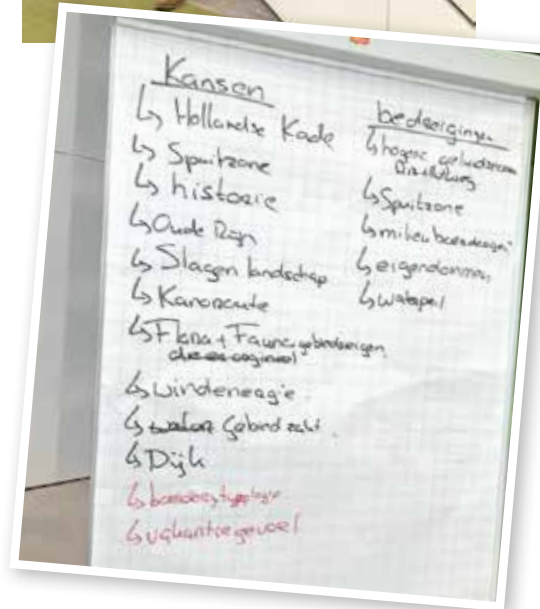 Kansen
↳ Hollandse Kade
↳ Spuitzone
↳ historie
↳ Oude Rijn
↳ Slagen landschap
↳ Kanoroute
↳ Flora + Fauna gebiedseigen
↳ windenergie
↳ Gebied zelf
↳ Dijk
↳ vakantiegevoel
bedreigingen
↳ hogere
↳ Spuitzone
↳ eigendommen
↳ waterpeil